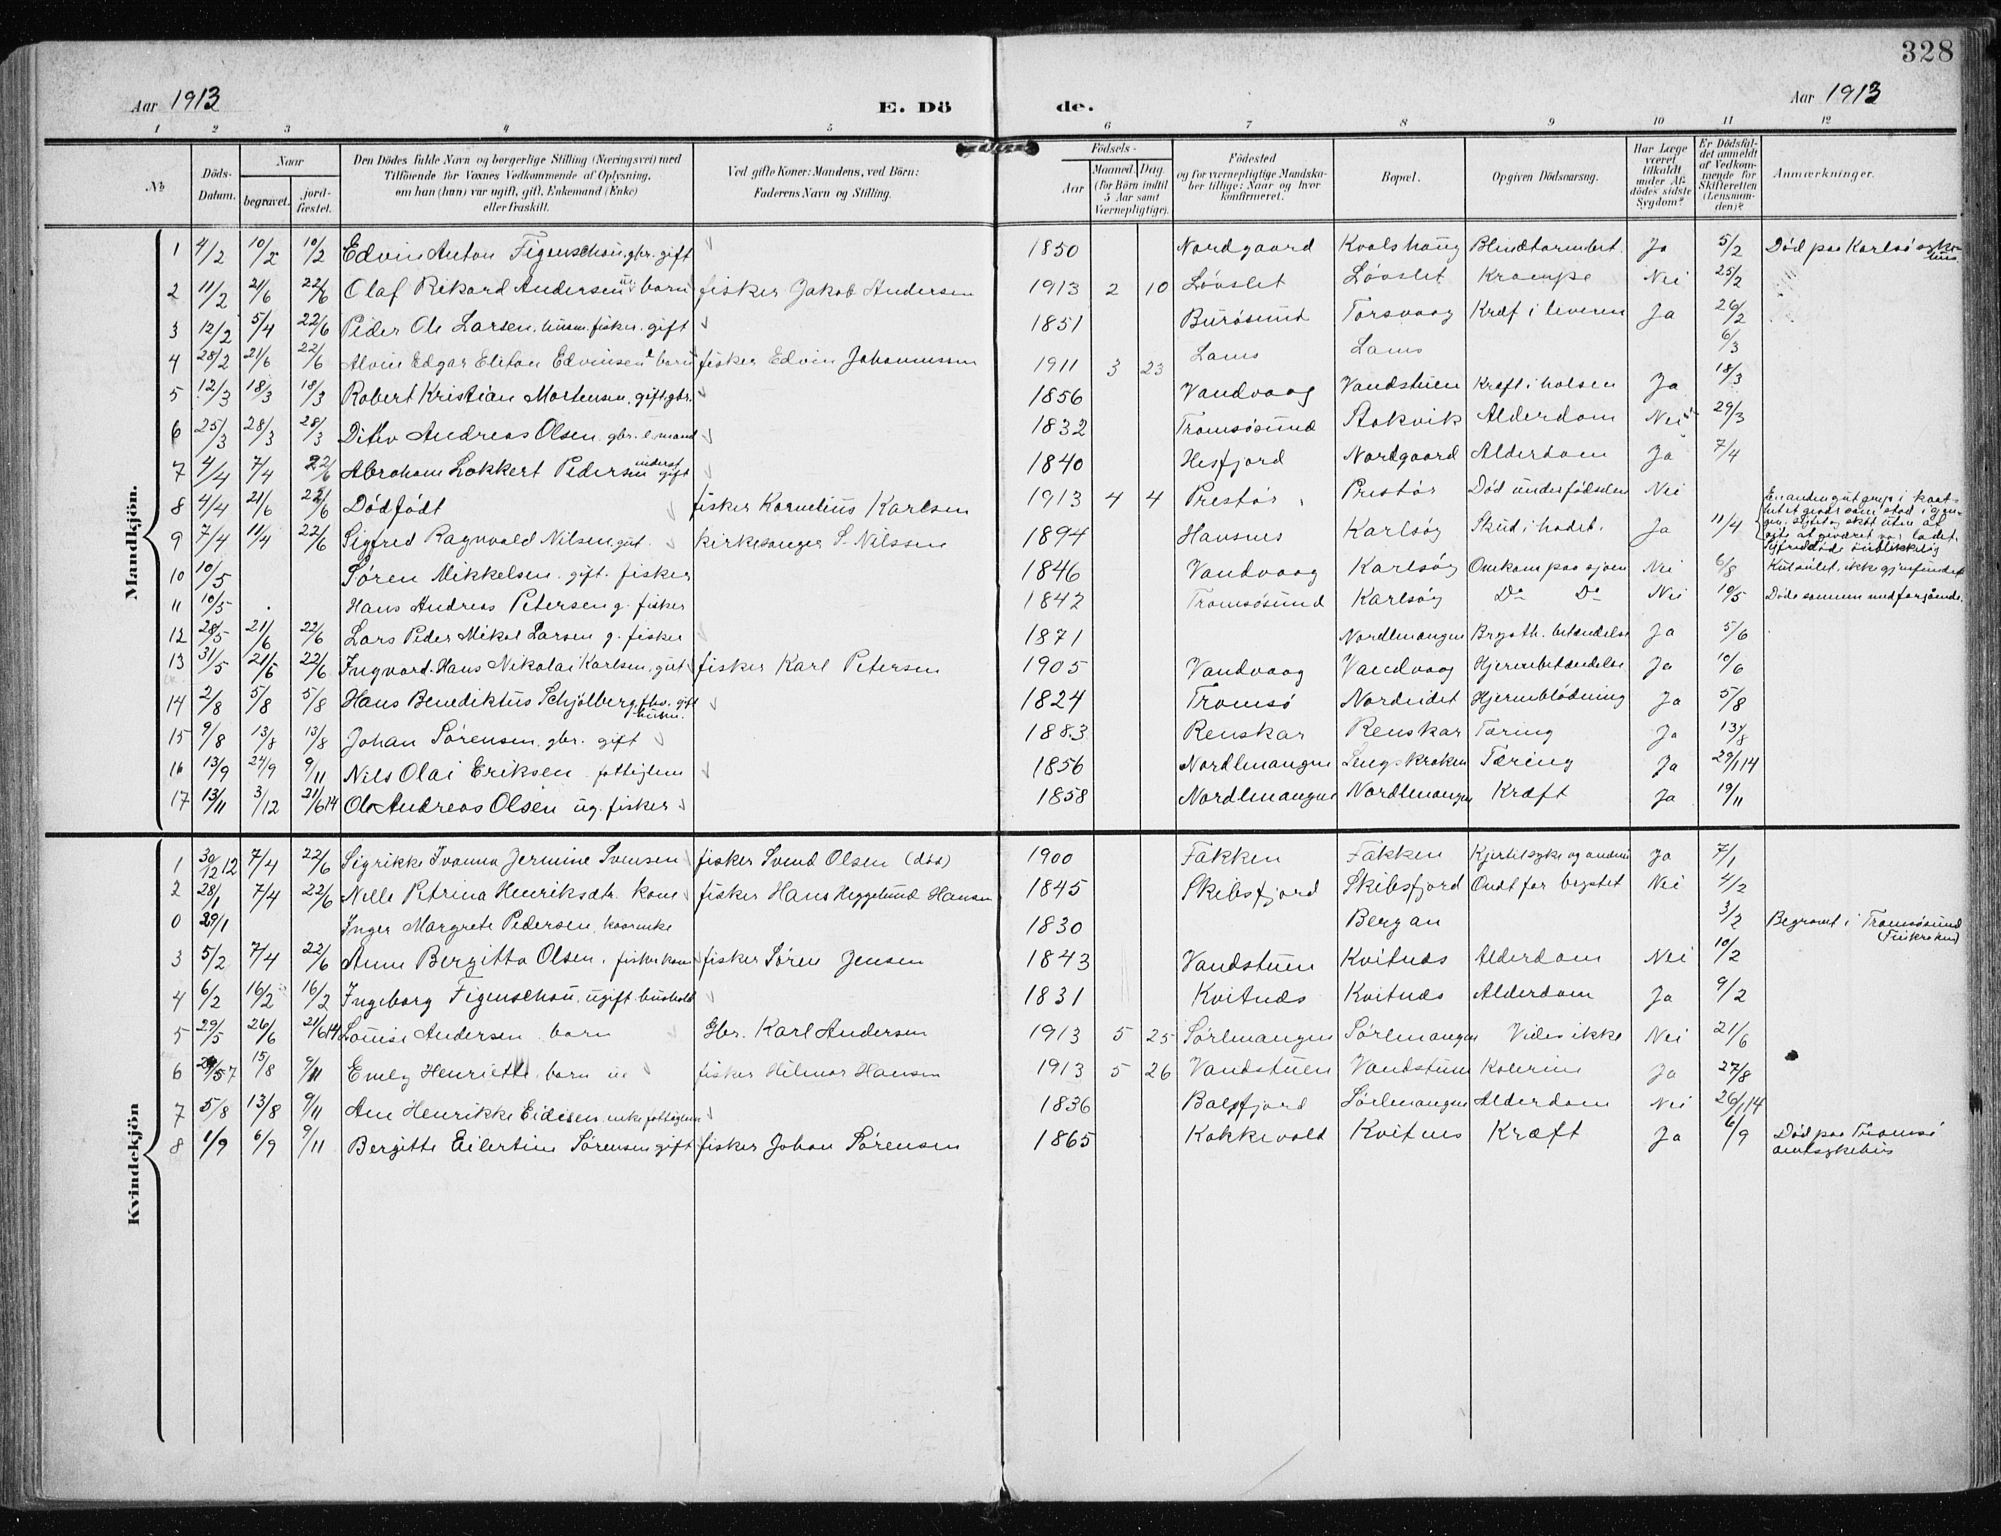 328
Aar 1913 E. Dö de. Aar 1913
1 2 3 4 5 6 7 8 9 10 11 12
No
Döds-Datum.
Naar
begravet.
jord-fæstet.
Den Dödes fulde Navn og borgerlige Stilling (Næringsvei) med
Tilföiende for Voxnes Vedkommende af Oplysning,
om han (hun) var ugift, gift, Enkemand (Enke)
eller fraskilt.
Ved gifte Koner: Mandens, ved Börn:
Faderens Navn og Stilling.
Födsels-
Aar
Maaned. Dag.
(for Börn indtil
5 Aar samt
Værnepligtige).
Födested
og for værnepligtige Mandska-
ber tillige: Naar og hvor
konfirmeret.
Bopæl.
Opgiven Dödsaarsag.
Har Læge
været
tilkaldt
under Af-
dödes sidste
Sygdom?
Er Dödsfal-
det anmeldt
af Vedkom-
mende for
Skifteretten
(Lensman-
den)?
Anmærkninger.
Mandkjön.
1 4/2 10/2 10/2 Edvin Anton Figenschou, gbr. gift 1850 Nordgaard Kvalshaug Blindtarmbet. Ja 5/2 Død paa Karlsö sykehus.
2 11/2 21/6 22/6 Olaf Rikard Andersen barn fisker Jakob Andersen 1913 2 10 Løvslet Løvslet Krampe Nei 25/2
3 12/2 5/4 22/6 Peder Ole Larsen, husm. fisker. gift 1851 Burøsund Torsvaag Kræf i leveren Ja 26/2
4 28/2 21/6 22/6 Alvin Edgar Eliton Edvinsen barn fisker Edvin Johannessen 1911 3 23 Lanes Lanes 6/3
5 12/3 18/3 18/3 Robert Kristian Mortensen, gift, gbr. 1856 Vandvaag Vandstuen Kræft i halsen Ja 18/3
6 25/3 28/3 28/3 Ditlev Andreas Olsen. gbr. e. mand 1832 Tromsøsund Stokvik Alderdom Nei 29/3
7 4/4 7/4 22/6 Abraham Lokkert Pedersen inderst gift 1840 Hesfjord Nordgaard Alderdom Ja 7/4
8 4/4 21/6 22/6 Dødfødt fisker Kornelius Karlsen 1913 4 4 Prestør Prestør Død under fødselen Nei
9 7/4 11/4 22/6 Sigfred Ragnvald Nilsen gut. kirkesanger S. Nilssen 1894 Hansnes Karlsøy Skud i hodet. Ja 11/4 En anden gut grep i kaat-
het et gevær som stod i gan-
gen, sigtet og skøt uten at
agte at geværet var ladet.
Sigfred døde øieblikkelig
10 10/5 Søren Mikkelsen. gift. fisker 1846 Vandvaag Karlsøy Omkom paa sjøen Nei 6/8 Kulseilet, ikke gjenfundet
11 10/5 Hans Andreas Petersen g. fisker 1842 Tromsøsund Karlsøy Do Do Nei 10/5 Døde sammen med foregående.
12 28/5 21/6 22/6 Lars Peder Mikal Larsen g. fisker 1871 Nordlenangen Brysth. betændelse Ja 5/6
13 31/5 21/6 22/6 Ingvard Hans Nikolai Karlsen, gut fisker Karl Petersen 1905 Vandvaag Vandvaag Hjernebetændelse Ja 10/6
14 2/8 5/8 5/8 Hans Benediktus Schjølberg, fhv. gift 1824 Tromsø Nordeidet Hjerneblødning Ja 5/8
15 9/8 13/8 13/8 Johan Sørensen, gbr. gift 1883 Renskar Renskar Tæring Ja 13/8
16 13/9 24/9 9/11 Nils Olai Eriksen. fattiglem 1856 Nordlenangen Lengskroken Tæring Ja 29/1 14
17 13/11 3/12 21/6 14 Ole Andreas Olsen ug. fisker 1858 Nordlenangen Nordlenangen Kræft Ja 19/11
Kvindekjön
1 30/12 12 7/4 22/6 Sigrikke Ivanna Jermine Svensen fisker Svend Olsen (død) 1900 Fakken Fakken Kjertelsyke og andre Ja 7/1
2 28/1 7/4 22/6 Nelle Petrina Henriksdtr. kone fisker Hans Heggelund Hansen 1845 Skibsfjord Skibsfjord Ondt for brystet Nei 4/2
0 29/1 Inger Margrete Pedersen, kaarenke 1830 Bergan 3/2 Begravet i Tromsøsund
3 5/2 7/4 22/6 Anne Bergitta Olsen. fiskerkone fisker Søren Jensen 1843 Vandstuen Kvitnes Alderdom Nei 10/2
4 6/2 16/2 16/2 Ingeborg Figenschou, ugift. hushold 1831 Kvitnes Kvitnes Alderdom Ja 9/2
5 29/5 26/6 21/6 14 Louise Andersen barn Gbr. Karl Andersen 1913 5 25 Sørlenangen Sørlenangen Vides ikke Nei 21/6
6 15/8 9/11 Emely Henriette, barn fisker Hilmar Hansen 1913 5 26 Vandstuen Vandstuen Kolerine Ja 27/8
7 5/8 13/8 9/11 Ane Henrikke Eidisen, enke fattiglem 1836 Balsfjord Sørlenangen Alderdom Nei 26/1 14
8 1/9 6/9 9/11 Bergitte Eilertine Sørensen gift fisker Johan Sørensen 1865 Kokkevold Kvitnes Kræft Ja 6/9 Død paa Tromsø
amtsykehus